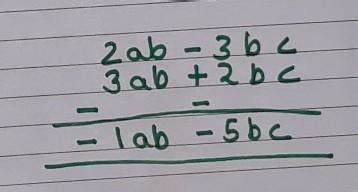 2ab - 3bc
3ab + 2bc
- -
- 1ab - 5bc